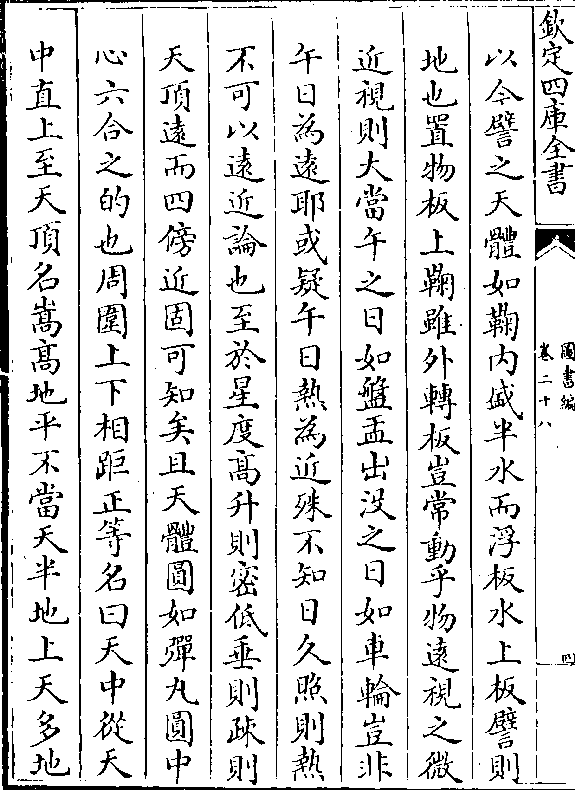 欽定四庫全書
圖書編
卷二十八
四
以今譬之天體如鞠內盛半水而浮板水上板譬則
地也置物板上鞠雖外轉板豈常動乎物遠視之微
近視則大當午之日如盤盂出没之日如車輪豈非
午日為遠耶或疑午日熱為近殊不知日久照則熱
不可以遠近論也至於星度髙升則密低垂則疎則
天頂遠而四傍近固可知矣且天體圓如彈丸圓中
心六合之的也周圍上下相距正等名曰天中從天
中直上至天頂名嵩髙地平不當天半地上天多地